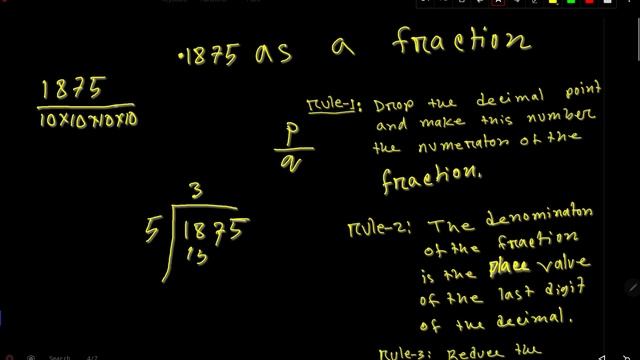 .1875 as a fraction
1875
10×10×10×10
P
q
Rule-1: Drop the decimal point
and make this number
the numerator of the
fraction.
3
5 1875
15
Rule-2: The denominator
of the fraction
is the place value
of the last digit
of the decimal.
Rule-3: Reduce the
Search